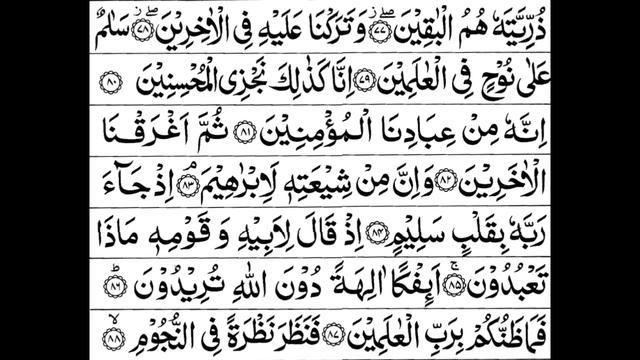 ذُرِّيَّتَهٗ هُمُ الْبٰقِيْنَ ﴿۷۷﴾ وَ تَرَكْنَا عَلَيْهِ فِی الْاٰخِرِيْنَ ﴿۷۸﴾ سَلٰمٌ
عَلٰى نُوْحٍ فِی الْعٰلَمِيْنَ ﴿۷۹﴾ اِنَّا كَذٰلِكَ نَجْزِی الْمُحْسِنِيْنَ ﴿۸۰﴾
اِنَّهٗ مِنْ عِبَادِنَا الْمُؤْمِنِيْنَ ﴿۸۱﴾ ثُمَّ اَغْرَقْنَا
الْاٰخَرِيْنَ ﴿۸۲﴾ وَاِنَّ مِنْ شِيْعَتِهٖ لَاِبْرٰهِيْمَ ﴿۸۳﴾ اِذْ جَآءَ
رَبَّهٗ بِقَلْبٍ سَلِيْمٍ ﴿۸۴﴾ اِذْ قَالَ لِاَبِيْهِ وَ قَوْمِهٖ مَاذَا
تَعْبُدُوْنَ ﴿۸۵﴾ اَئِفْكًا اٰلِهَةً دُوْنَ اللّٰهِ تُرِيْدُوْنَ ﴿۸۶﴾
فَمَا ظَنُّكُمْ بِرَبِّ الْعٰلَمِيْنَ ﴿۸۷﴾ فَنَظَرَ نَظْرَةً فِی النُّجُوْمِ ﴿۸۸﴾